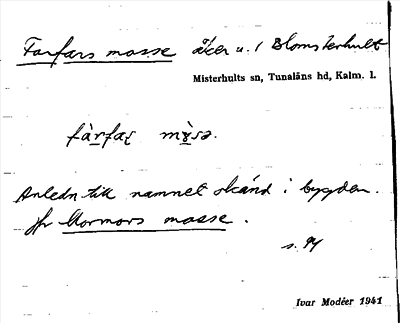 Farfars mosse åker u. / Blomsterhult
Misterhults sn, Tunaläns hd, Kalm. l.
fàrfaʈ
Anledn till namnet okänd i bygden.
Jfr Mormors mosse.
s. 94
Ivar Modéer 1941